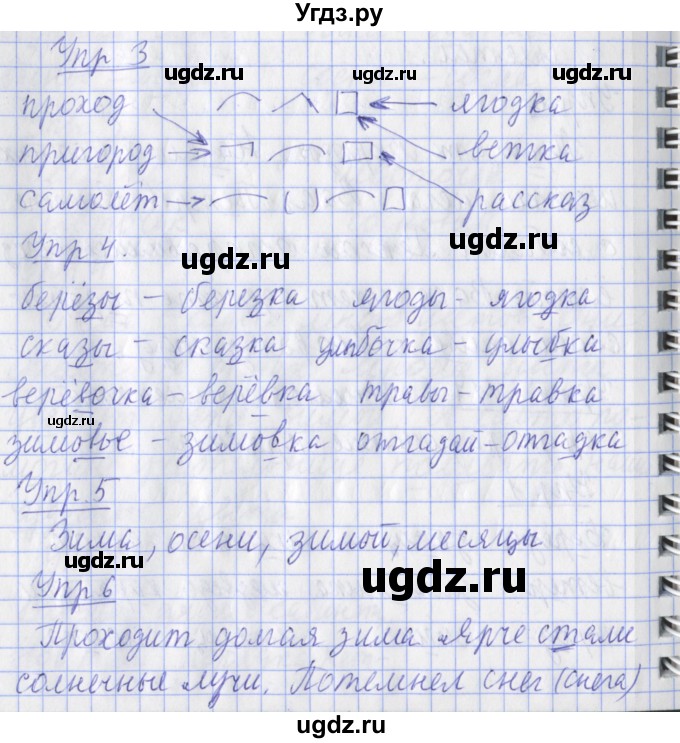 Угдз.ру
Упр 3
ugdz.ru ugdz.ru
проход ягодка
пригород ветка
самолёт рассказ
Упр 4.
ugdz.ru ugdz.ru
берёзы - березка ягоды - ягодка
сказы - сказка улыбочка - улыбка
верёвочка - верёвка травы - травка
ugdz.ru
зимовье - зимовка отгадай - отгадка
Упр. 5
Зима, осени, зимой, месяцы
ugdz.ru ugdz.ru
Упр 6
Проходит долгая зима Ярче стали
солнечные лучи. Потемнел снег (снега)
ugdz.ru